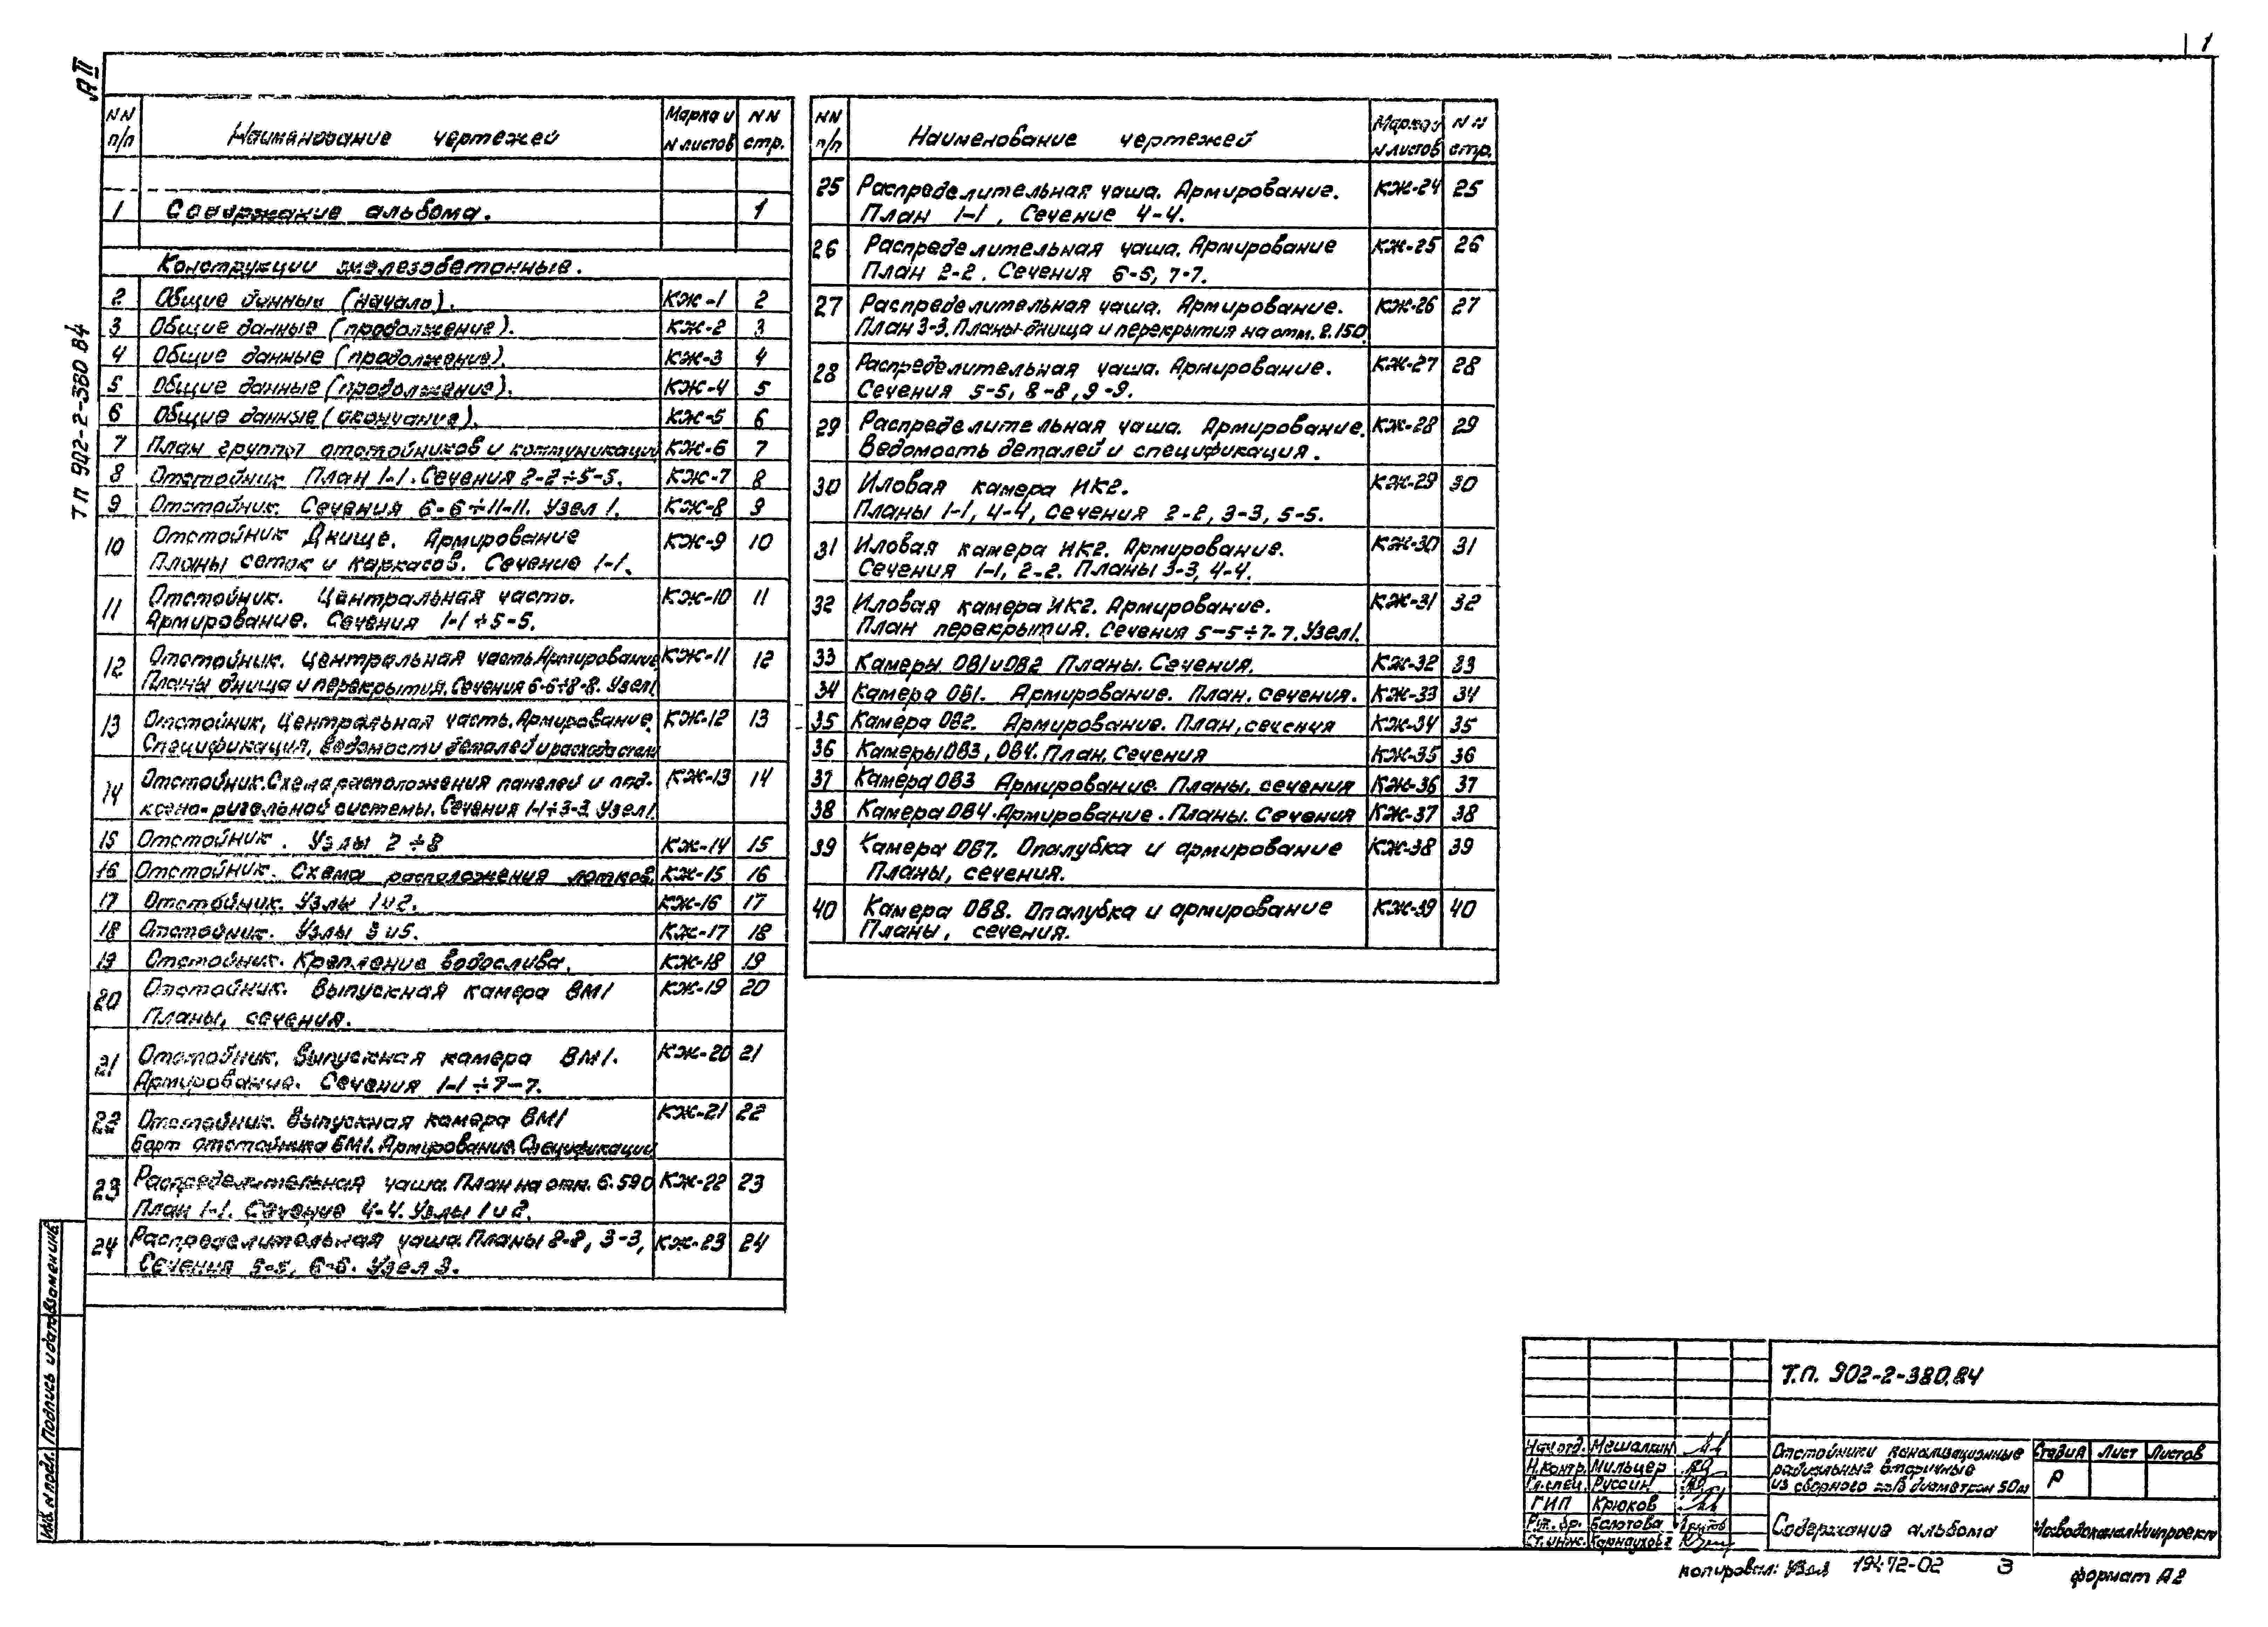 1
А II
ТП 902-2-380 84
NN п/п Наименование чертежей Марка и N листов NN стр.
1 Содержание альбома. 1
Конструкции железобетонные.
2 Общие данные (начало). КЖ-1 2
3 Общие данные (продолжение). КЖ-2 3
4 Общие данные (продолжение). КЖ-3 4
5 Общие данные (продолжение). КЖ-4 5
6 Общие данные (окончание). КЖ-5 6
7 План группы отстойников и коммуникаций КЖ-6 7
8 Отстойник План 1-1. Сечения 2-2÷5-5. КЖ-7 8
9 Отстойник. Сечения 6-6÷11-11. Узел 1. КЖ-8 9
10 Отстойник Днище. Армирование КЖ-9 10
Планы сеток и каркасов. Сечение 1-1.
11 Отстойник. Центральная часть. КЖ-10 11
Армирование. Сечения 1-1÷5-5.
12 Отстойник. Центральная часть. Армирование КЖ-11 12
Планы днища и перекрытия. Сечения 6-6÷8-8. Узел 1
13 Отстойник, Центральная часть. Армирование. КЖ-12 13
Спецификация, ведомости деталей и расхода стали
14 Отстойник. Схема расположения панелей и под- КЖ-13 14
косно-ригельной системы. Сечения 1-1÷3-3 Узел 1.
15 Отстойник. Узлы 2÷8 КЖ-14 15
16 Отстойник. Схема расположения лотков. КЖ-15 16
17 Отстойник. Узлы 1 и 2. КЖ-16 17
18 Отстойник. Узлы 3 и 5. КЖ-17 18
19 Отстойник. Крепление водослива. КЖ-18 19
20 Отстойник. Выпускная камера ВМ1 КЖ-19 20
Планы, сечения.
21 Отстойник. Выпускная камера ВМ1. КЖ-20 21
Армирование. Сечения 1-1÷7-7.
22 Отстойник. Выпускная камера ВМ1 КЖ-21 22
Борт отстойника БМ1. Армирование. Спецификации
23 Распределительная чаша. План на отм. 6.590 КЖ-22 23
План 1-1. Сечение 4-4. Узлы 1 и 2.
24 Распределительная чаша. Планы 2-2, 3-3, КЖ-23 24
Сечения 5-5, 6-6. Узел 3.
NN п/п Наименование чертежей Марка и N листов NN стр.
25 Распределительная чаша. Армирование. КЖ-24 25
План 1-1, Сечение 4-4.
26 Распределительная чаша. Армирование КЖ-25 26
План 2-2. Сечения 6-6, 7-7.
27 Распределительная чаша. Армирование. КЖ-26 27
План 3-3. Планы днища и перекрытия на отм. 2.150.
28 Распределительная чаша. Армирование. КЖ-27 28
Сечения 5-5, 8-8, 9-9.
29 Распределительная чаша. Армирование. КЖ-28 29
Ведомость деталей и спецификация.
30 Иловая камера ИК2. КЖ-29 30
Планы 1-1, 4-4, Сечения 2-2, 3-3, 5-5.
31 Иловая камера ИК2. Армирование. КЖ-30 31
Сечения 1-1, 2-2. Планы 3-3, 4-4.
32 Иловая камера ИК2. Армирование. КЖ-31 32
План перекрытия. Сечения 5-5÷7-7. Узел 1.
33 Камеры ОВ1 и ОВ2 Планы. Сечения. КЖ-32 33
34 Камера ОВ1. Армирование. План, сечения. КЖ-33 34
35 Камера ОВ2. Армирование. План, сечения КЖ-34 35
36 Камеры ОВ3, ОВ4. План, Сечения КЖ-35 36
37 Камера ОВ3 Армирование. Планы, сечения КЖ-36 37
38 Камера ОВ4. Армирование. Планы. Сечения КЖ-37 38
39 Камера ОВ7. Опалубка и армирование КЖ-38 39
Планы, сечения.
40 Камера ОВ8. Опалубка и армирование КЖ-39 40
Планы, сечения.
Взамен инв.
Подпись и дата
Инв. N подл.
Т.П. 902-2-380.84
Нач. отд. Мешалкин
Н. контр. Мильцер
Гл. спец. Руссин
ГИП Крюков
Рук. бр. Болотова
Ст. инж. Карнаухова
Отстойники канализационные
радиальные вторичные
из сборного ж/б диаметром 50м
Стадия Лист Листов
Р
Содержание альбома
МосводоканалНИИпроект
Копировал: 19472-02 3 формат А2